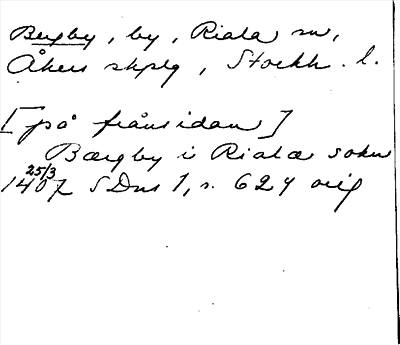 Bergby, by, Riala sn,
Åkers skplg, Stockh. l.
[på frånsidan]
Bærgby i Riala sokn
25/3
1407 SDns 1, s. 624 orig